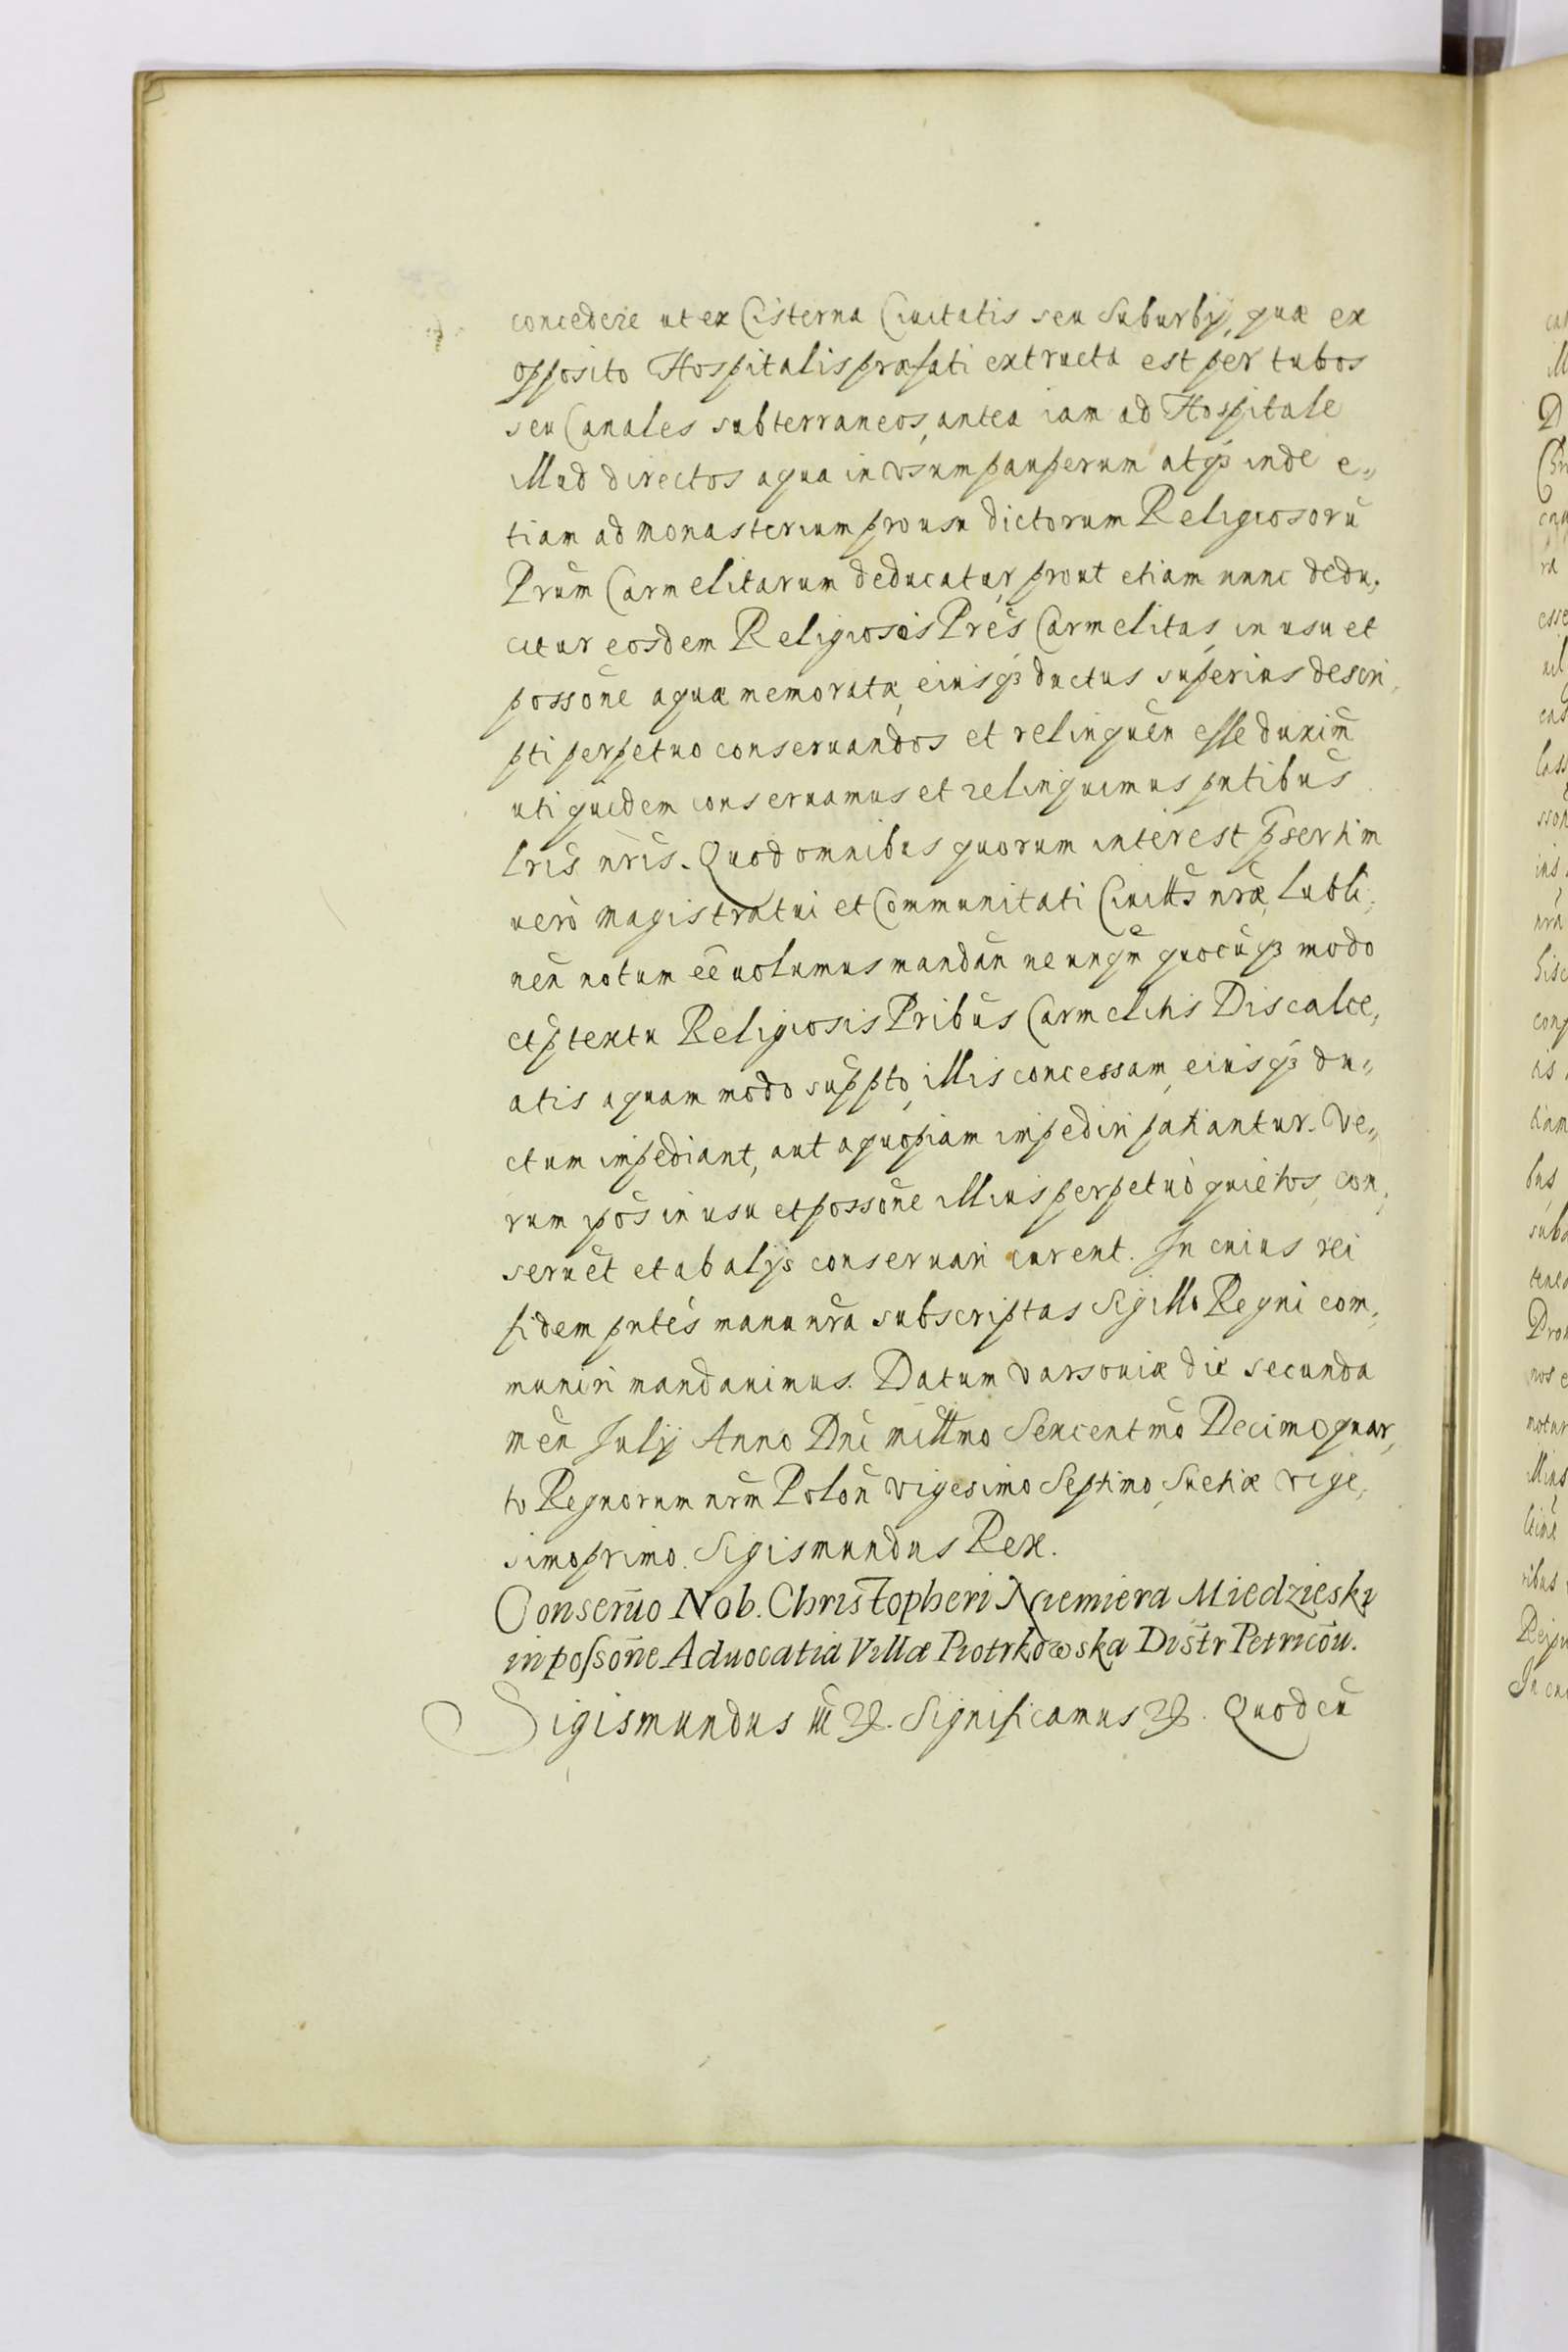 concedere ut ex Cisterna Ciuitatis seu Suburbij, quæ ex
opposito Hospitalis præfati extructa est per tubos
seu Canales subterraneos, antea iam ad Hospitale
illud directos aqua in vsum pauperum atq3 inde e„
tiam ad monasterium pro usu dictorum Religiosorū
Prūm Carmelitarum deducatur, prout etiam nunc dedu,
citur eosdem Religiosos Prēs Carmelitas, in usu et
possōne aquæ memoratæ, eiusq3 ductus superius descri,
pti perpetuo conseruandos et relinquēn esse duxim̄
uti quidem conseruamus et relinquimus pn̄tibus
lr̄is nr̄is. Quod omnibus quorum interest p̄sertim
uerò magistratui et Communitati Ciuitt̄s nr̄æ, Lubli,
nen̄ notum eē uolumus mandān ne unqn̄ quocūq3 modo
et p̄textu Religiosis Pribūs Carmelitis Discalce,
atis aquam modo sup̄pto, illis concessam, eiusq3 du„
ctum impediant, aut a quopiam impediri patiantur. Ve„
rum ip̄os in usu et possōne illius perpetuò quietos, con,
seruēt et ab alijs conseruari curent. In cuius rei
fidem pn̄tes manu nr̄a subscriptas Sigillo Regni com,
muniri mandauimus. Datum Varsouiæ die secunda
men̄ Julij Anno Dn̄i mill̄mo Sexcentmō Decimoquar,
to Regnorum nrm̄ Polōn vigesimo Septimo, Suetiæ vige,
simoprimo. Sigismundus Rex.
Conserūo Nob. Christopheri Niemiera Miedzieski
in possōne Aduocatia Villæ Piotrkowska Distr Petricōu.
Sigismundus III. Significamus. Quod cū